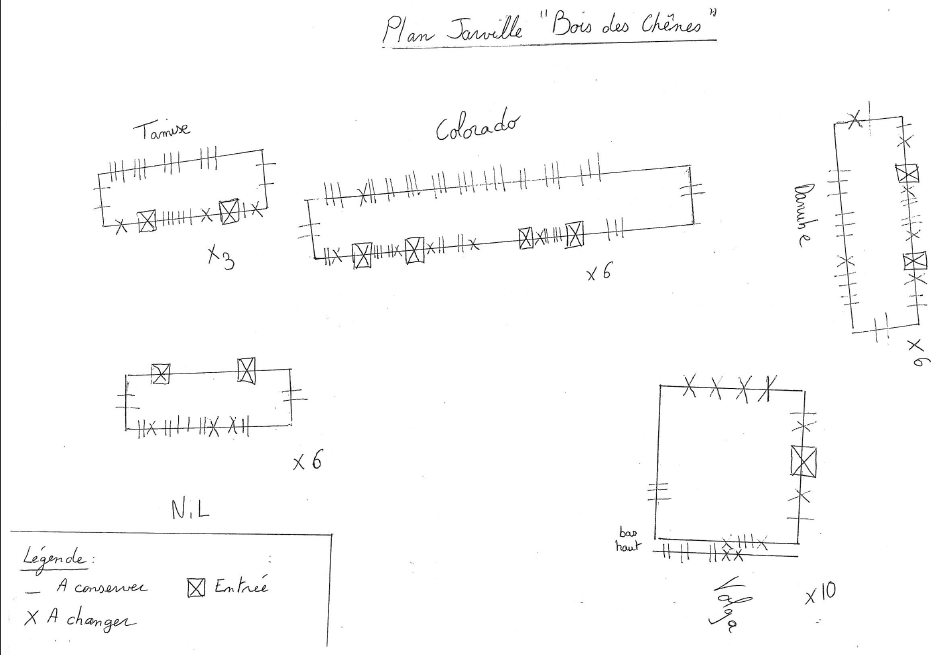 Plan Jarville "Bois des Chênes"
Tamise
x3
Colorado
x6
Danube
x6
x6
NiL
bas
haut
Volga
x10
Légende :
_ A conserver
Entrée
X A changer